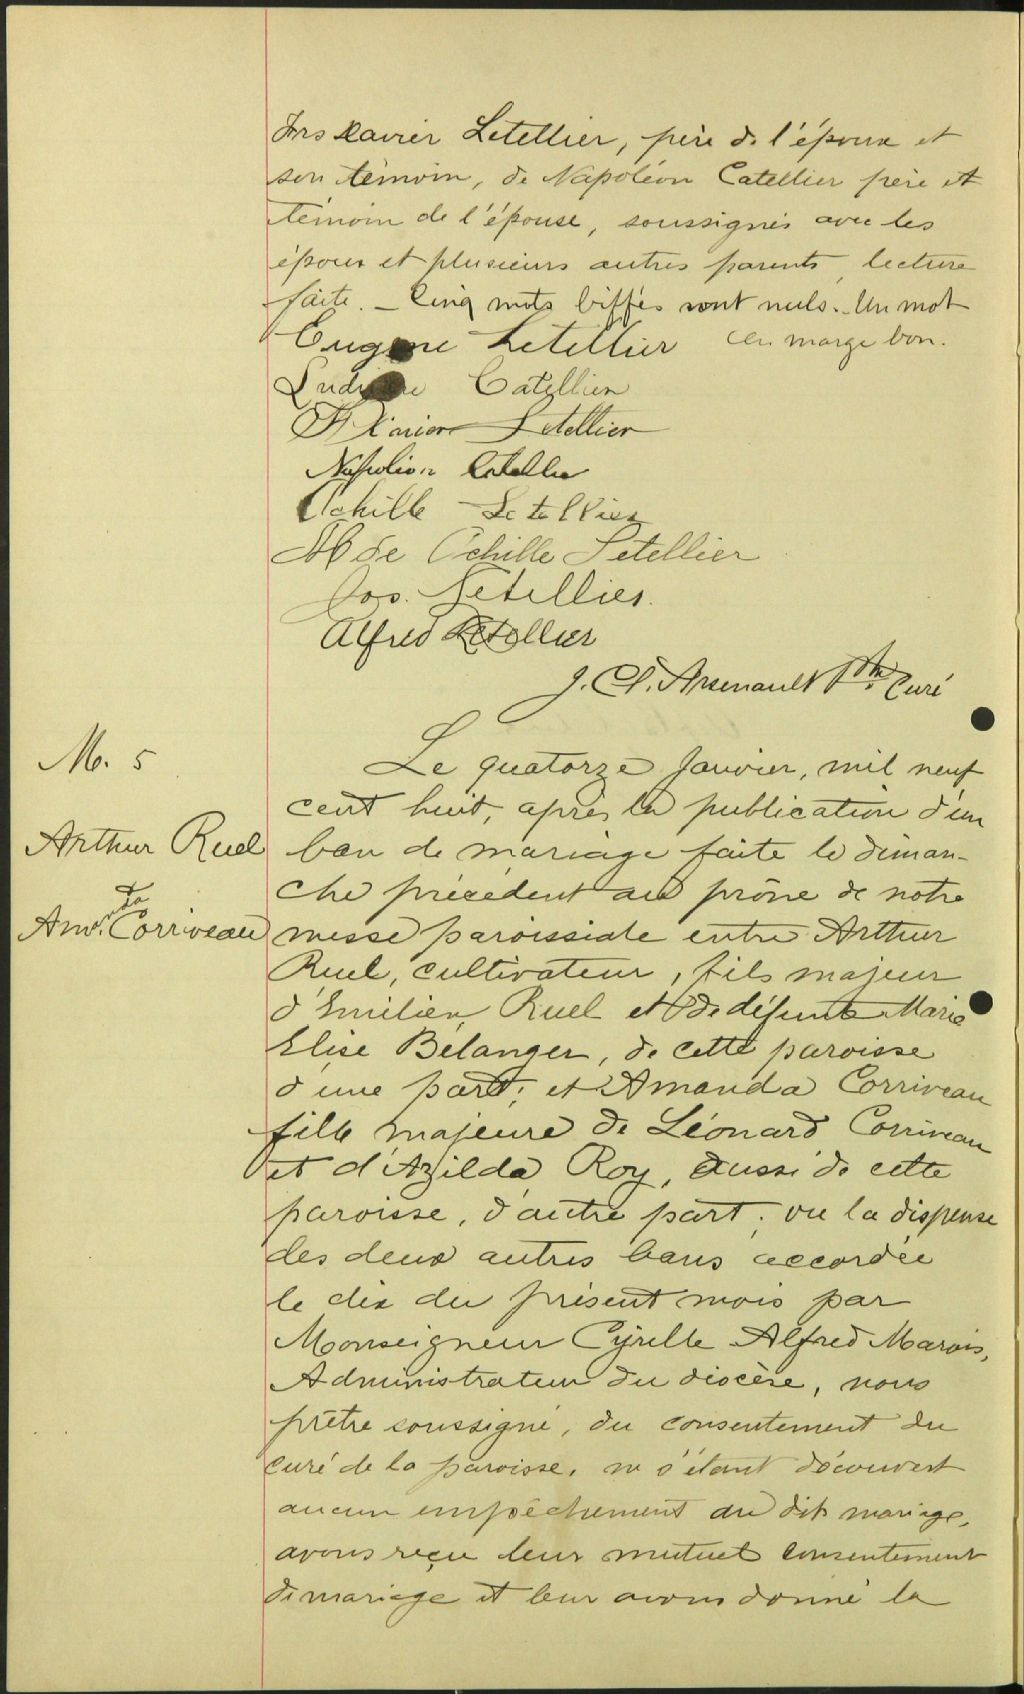 Frs Xavier Letellier, père de l'époux et
son témoin, de Napoléon Catellier père et
témoin de l'épouse, soussignés avec les
époux et plusieurs autres parents, lecture
faite. _ Cinq mots biffés sont nuls. Un mot
en marge bon.
Eugène Letellier
Catellier
F Xavier Letellier
Napoléon Catellier
Achille Letellier
Mde Achille Letellier
Jos. Letellier.
Alfred Letellier
J. Cl. Arsenault Ptre. Curé
M. 5
Arthur Ruel
Amanda Corriveau
Le quatorze Janvier, mil neuf
cent huit, après la publication d'un
ban de mariage faite le diman-
che précédent au prône de notre
messe paroissiale entre Arthur
Ruel, cultivateur, fils majeur
d'Emilien Ruel et de défunte Marie
Elise Bélanger, de cette paroisse
d'une part; et Amanda Corriveau
fille majeure de Léonard Corriveau
et d'Azilda Roy, aussi de cette
paroisse, d'autre part; vu la dispense
des deux autres bans accordée
le dix du présent mois par
Monseigneur Cyrille Alfred Marois,
Administrateur du diocèse, nous
prêtre soussigné, du consentement du
curé de la paroisse, ne s'étant découvert
aucun empêchement au dit mariage,
avons reçu leur mutuel consentement
de mariage et leur avons donné la